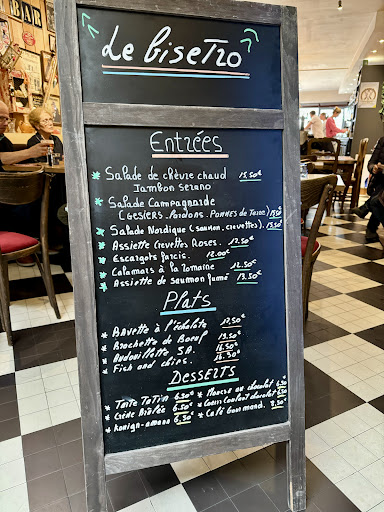 BAR
Le Bisetro
Entrées
* Salade de chèvre chaud 15.50€
Jambon Serano
* Salade Campagnarde
(Gesiers. Lardons. Pommes de Terre) 13.50€
* Salade Nordique (saumon, crevettes). 13.50€
* Assiette Crevettes Roses. 12.50€
* Escargots farcis. 12.00€
* Calamars à la romaine 12.50€
* Assiette de saumon fumé 13.50€
Plats
* Bavette à l'échalote 17.50€
* Brochette de Boeuf 19.50€
* Andouillette 5A. 16.50€
* Fish and chips. 16.50€
Desserts
* Tarte Tatin 6.50€ * Mousse au chocolat 6.50€
* Crème Brûlée 6.50€ * Coeur Coulant chocolat
* Kouign-amann 6.50€ * Café Gourmand. 8.50€